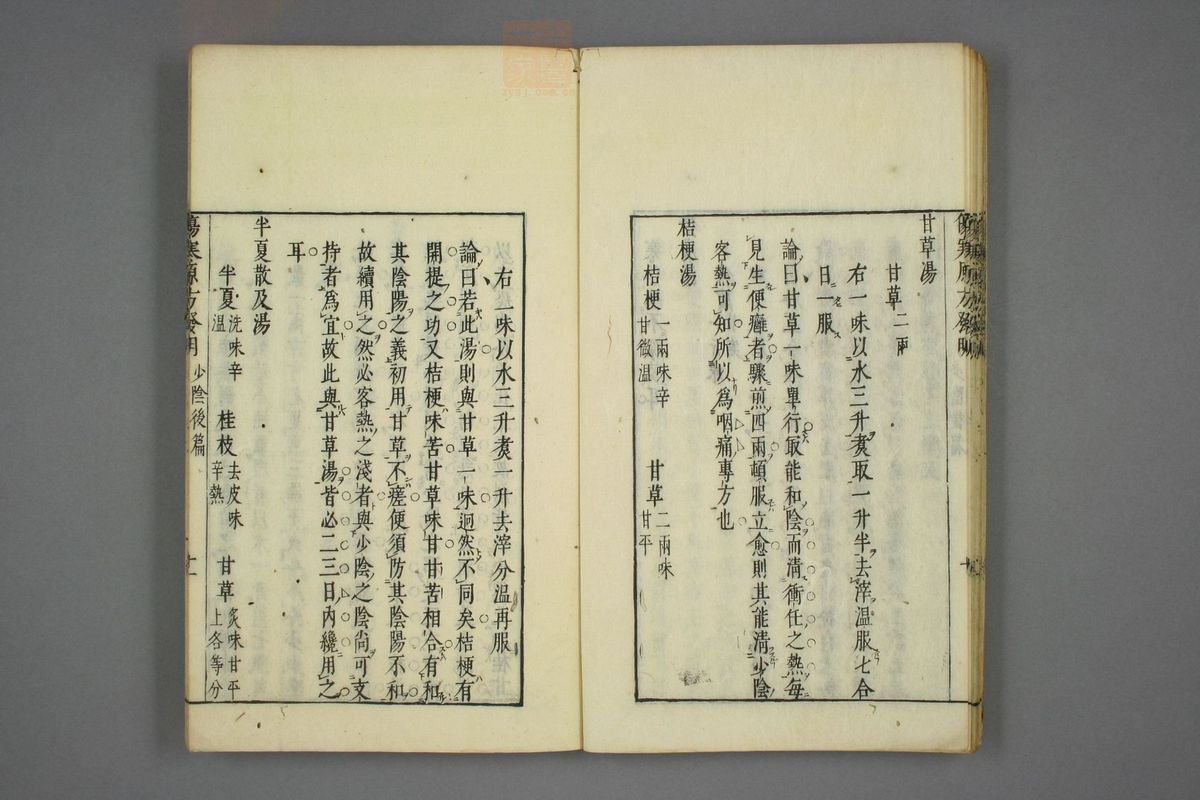 甘草湯
甘草二兩
右一味以水三升煑取一升半去滓溫服七合
日二服
論曰甘草一味單行最能和陰而清衝任之熱每
見生便癰者驟煎四兩頓服立愈則其能清少陰
客熱可知所以為咽痛專方也
桔梗湯
桔梗一兩味辛甘微溫 甘草二兩味甘平
右一味以水三升煑一升去滓分溫再服
論曰若此湯則與甘草一味迥然不同矣桔梗有
開提之功又桔梗味苦甘草味甘甘苦相合有和
其陰陽之義初用甘草不瘥便須防其陰陽不和
故續用之然必客熱之淺者與少陰之陰尚可支
持者為宜故此與甘草湯皆必二三日內纔用之
耳
半夏散及湯
半夏洗味辛溫 桂枝去皮味辛熱 甘草炙味甘平上各等分
傷寒源方發明 少陰後篇